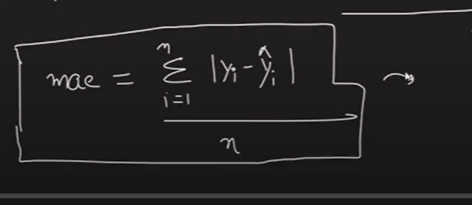 mae = Σ_{i=1}^{n} |yᵢ - ŷᵢ|
n